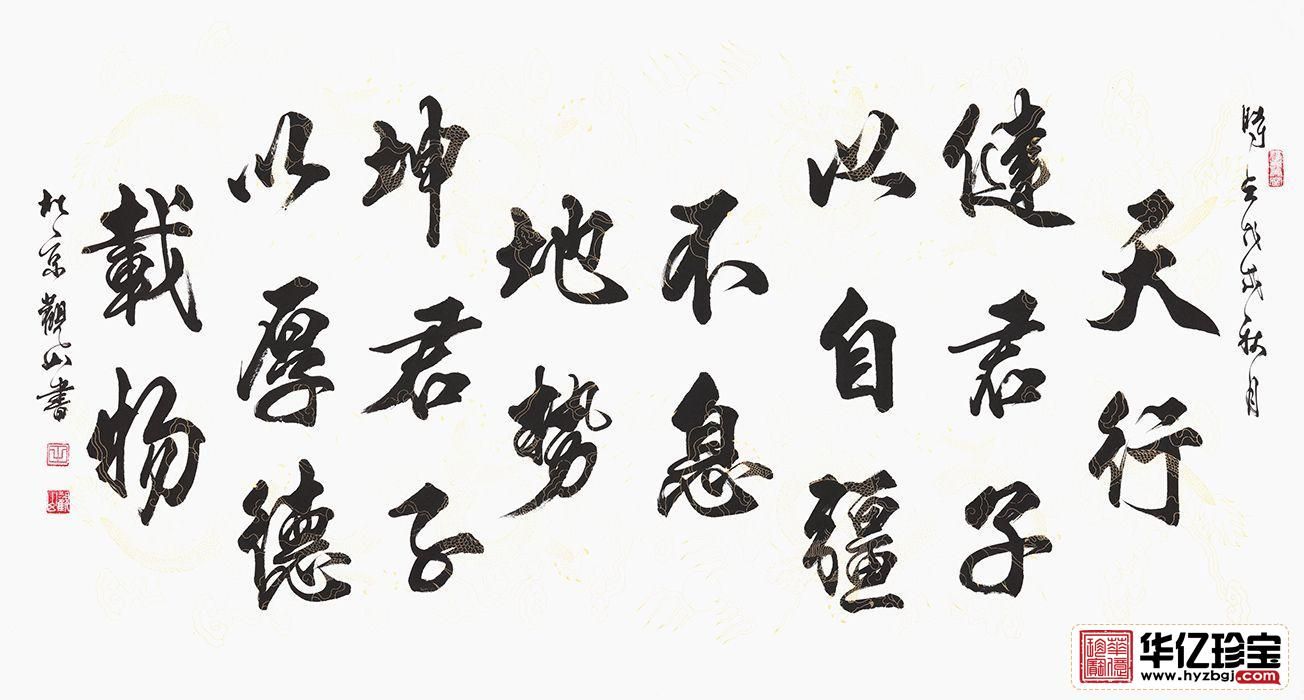 時在戊戌秋月
天行
健君子
以自疆
不息
地勢
坤君子
以厚德
載物
於京觀山書
华亿珍宝
www.hyzbgj.com